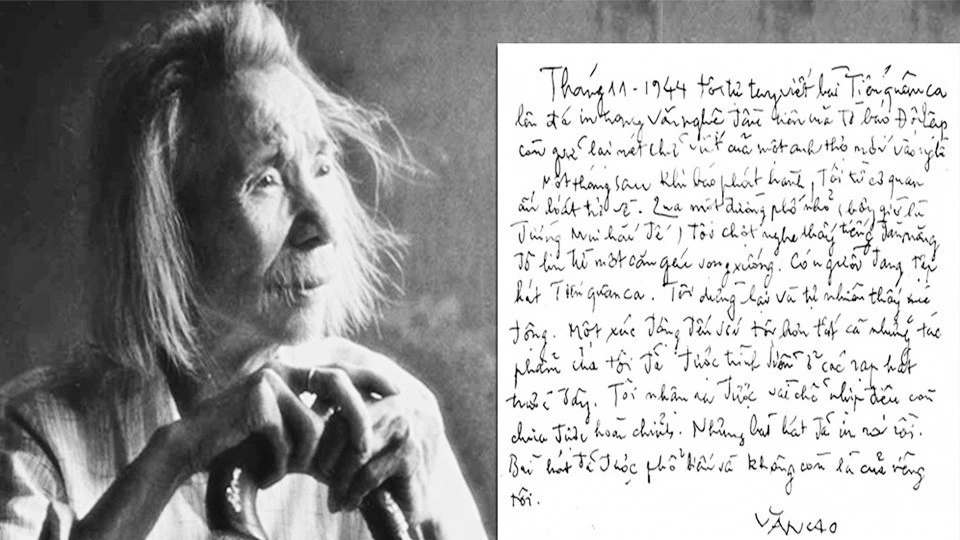 Tháng 11-1944 tôi tự tay viết bài Tiến quân ca
lên đá in trong văn nghệ đầu tiên của tờ báo Độc lập
còn giữ lại nét chữ viết của một anh thợ mới vào nghề
Một tháng sau khi báo phát hành, Tôi từ cơ quan
ấn loát trở về. Qua một đường phố nhỏ (bây giờ là
đường Mai hắc Đế) tôi chợt nghe thấy tiếng đàn măng
đô lin từ một căn gác vọng xuống. Có người đang tập
hát Tiến quân ca. Tôi dừng lại và tự nhiên thấy xúc
động. Một xúc động đến với tôi hơn tất cả những tác
phẩm của tôi đã được trình diễn ở các rạp hát
trước đây. Tôi nhận ra được vài chỗ nhịp điệu còn
chưa được hoàn chỉnh. Nhưng bài hát đã in ra rồi.
Bài hát đã được phổ biến và không còn là của riêng
tôi.
VĂN CAO